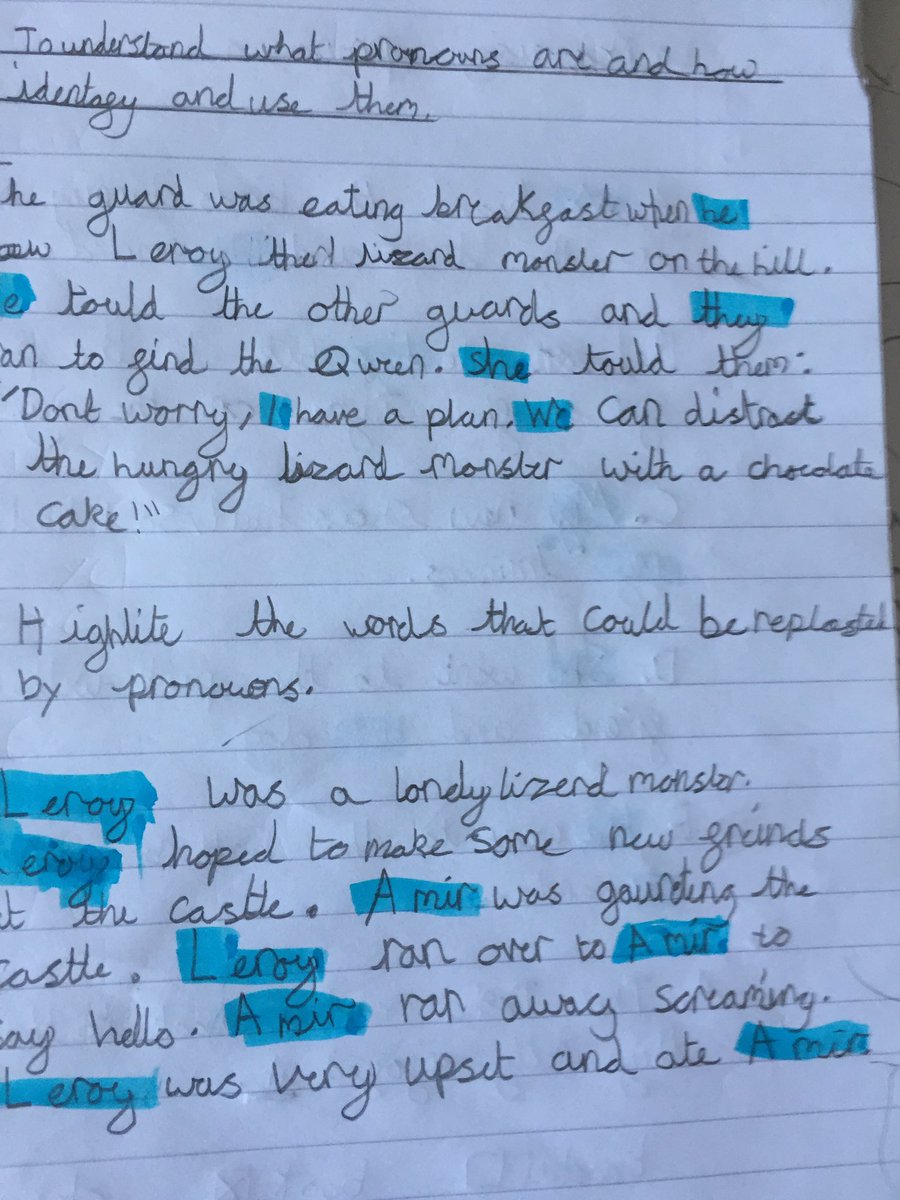 To understand what pronouns are and how
identagy and use them.
he guard was eating breakgast when he
aw Leroy the lizard monster on the hill.
e tould the other guards and they
an to gind the Qween. She tould them:
"Dont worry, I have a plan. We can distract
the hungry lizard monster with a chocolate
cake!"
Highlite the words that could be
by pronouns.
Leroy was a lonely lizerd monster.
eroy hoped to make some new greinds
t the castle. Amir was gaurding the
castle. Leroy ran over to Amir to
say hello. Amir ran away screaming.
Leroy was very upset and ate Amir